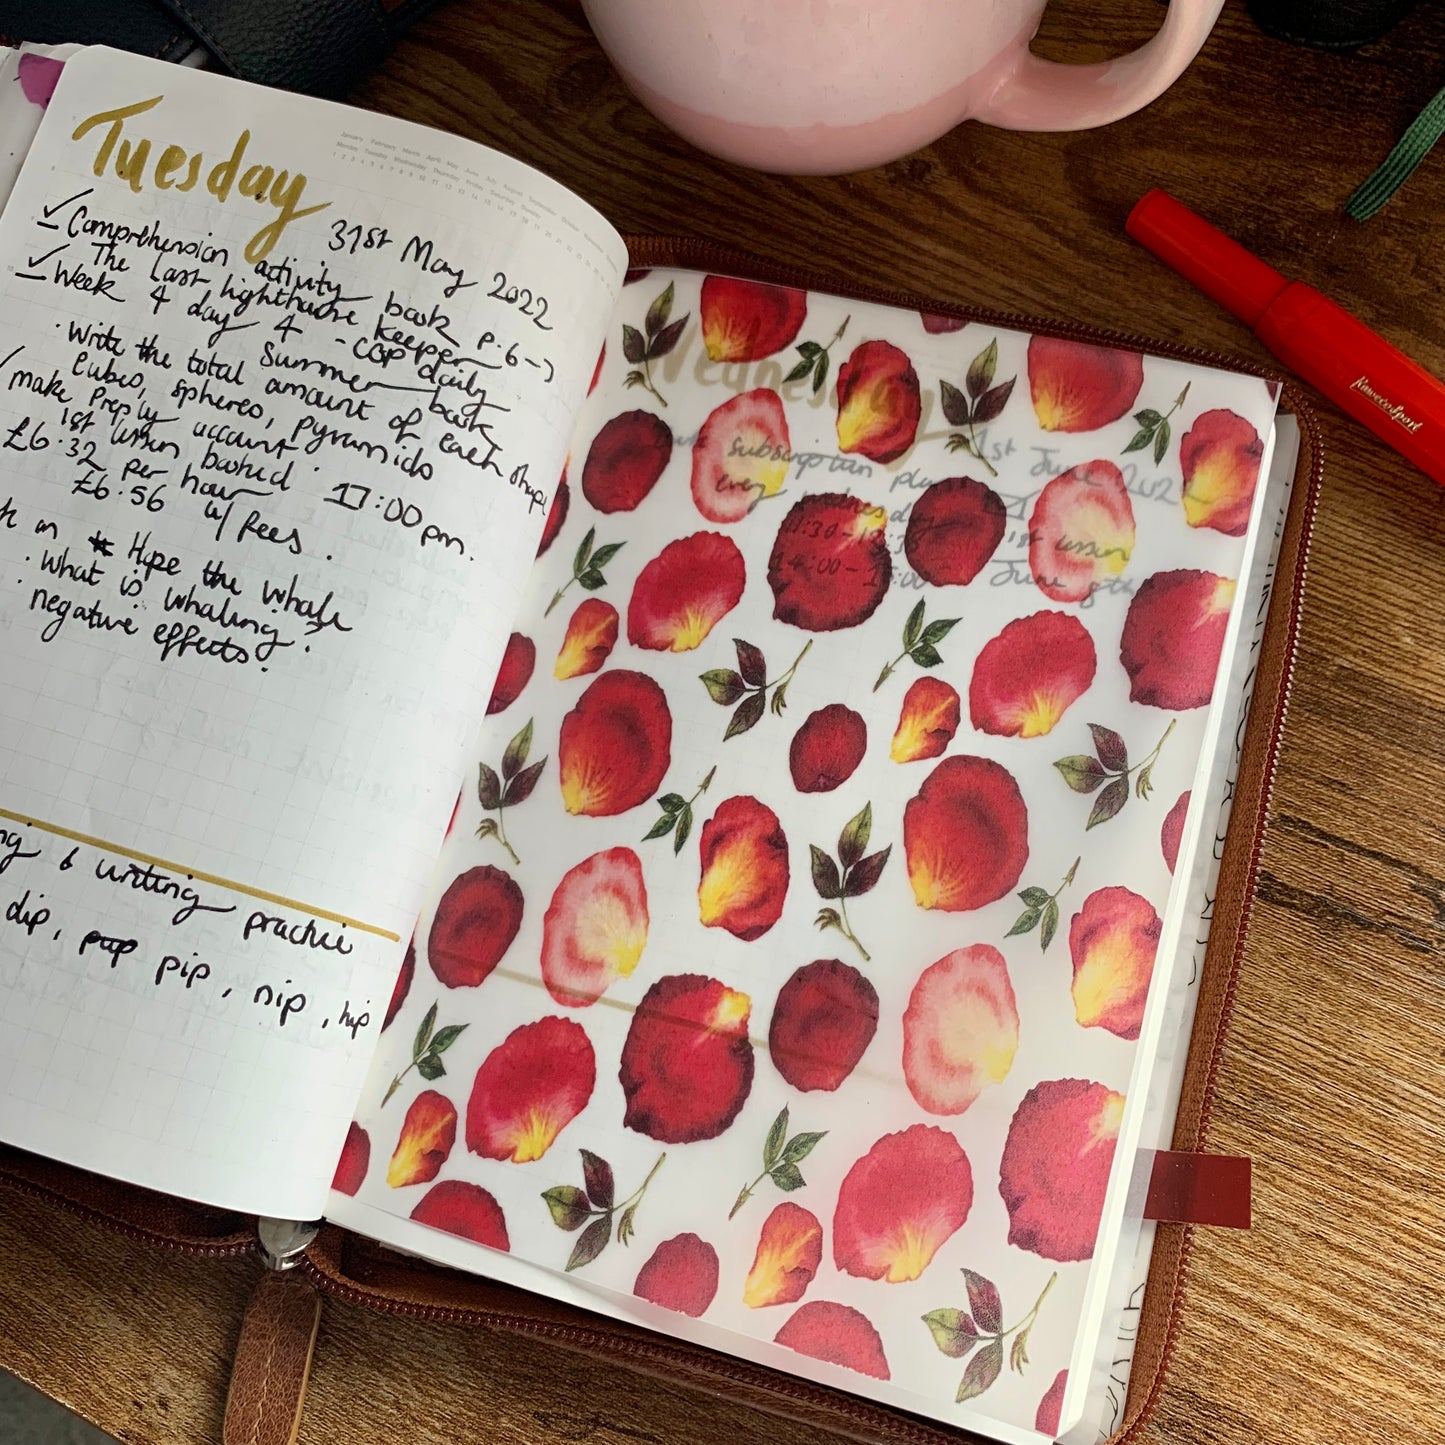 Tuesday
January February March April May June July August September October November December
Monday Tuesday Wednesday Thursday Friday Saturday Sunday
31st May 2022
✓ Comprehension activity book p.6 →
The last lighthouse keeper
✓ Week 4 day 4 - CGP daily
Summer book
· Write the total amount of each shape
Cubes, spheres, pyramids
make Preply account ·
1st lesson booked 17:00pm.
£6.32 per hour
£6.56 w/ fees.
on Hope the whale
· What is whaling?
· negative effects.
& writing practice
dip, pop pip, nip, hip
Wednesday
1st June 2022
subscription plan
every wednesday
1st lesson
June 8th
14:00 - 15:00
Kaweco Sport